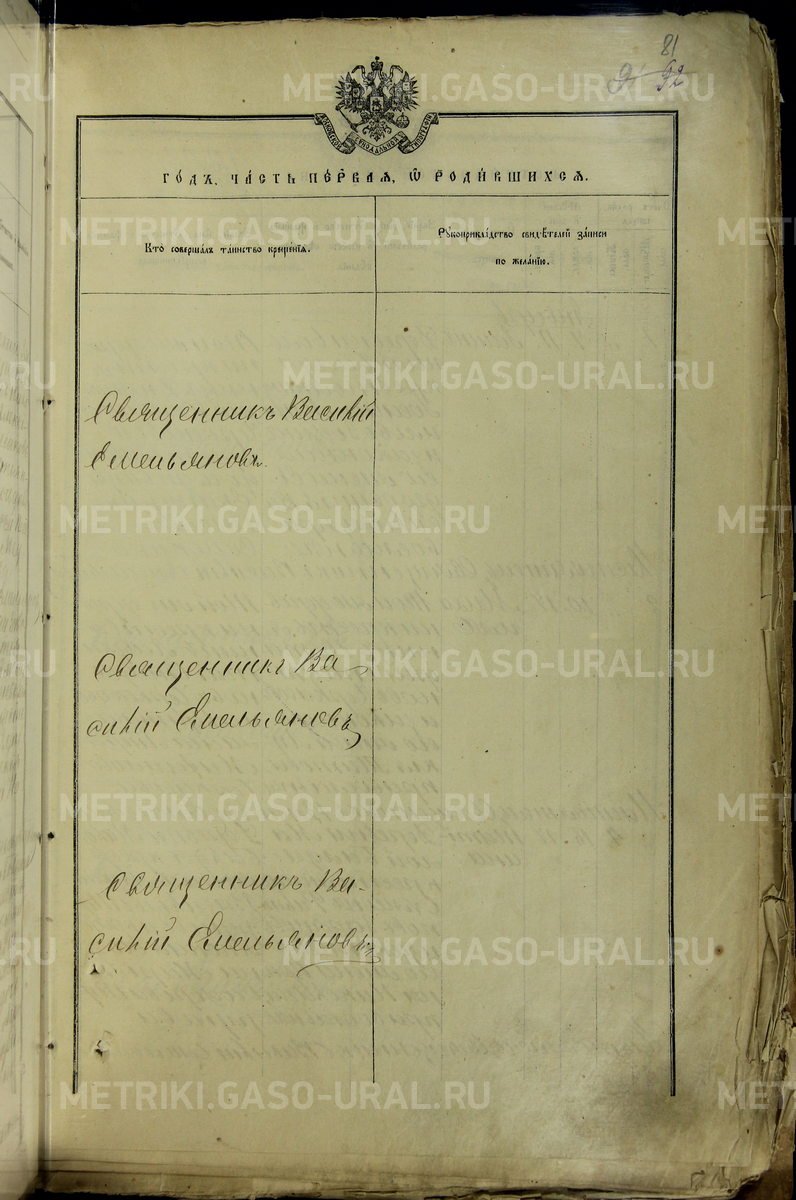 81
92
МОСКОВСКОЙ СѴНОДАЛЬНОЙ ТИПОГРАФІИ
ГО́ДЪ, ЧА́СТЬ ПЕ́РВАѦ, Ѡ҆ РОДИ́ВШИХСѦ.
Кто̀ соверша́лъ та́инство креще́нїѧ.
Рꙋкоприкла́дство свидѣ́телей за́писи
по жела́нїю.
Священникъ Василій
Емельяновъ.
Священникъ Ва-
силій Емельяновъ
Священникъ Ва-
силій Емельяновъ
METRIKI.GASO-URAL.RU